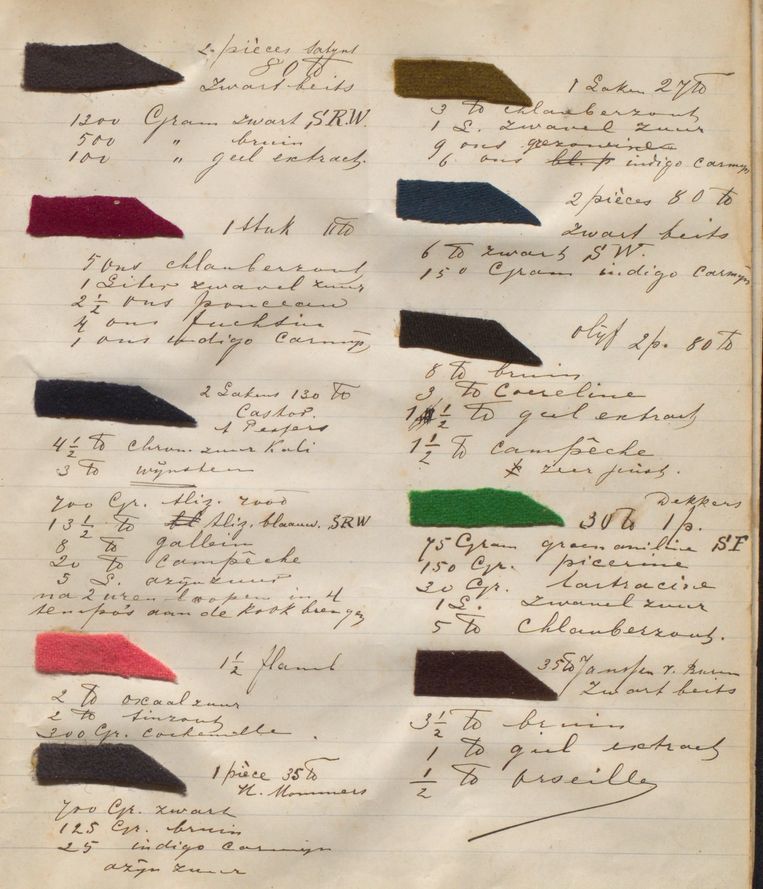 2 pièces satynt
80 ℔
Zwart beits
1300 Gram zwart SRW.
500 " bruin
100 " geel extract.
1 stuk 11 ℔
5 ons chlauberzout
1 Liter zwavel zuur
2 1/2 ons ponceau
4 ons fuchsin
1 ons indigo Carmijn
2 Lakens 130 ℔
Castor.
4 1/2 ℔ chrom. zuur Kali
3 ℔ wijnsteen
700 Gr. Aliz. rood
13 1/2 ℔ Aliz. blaauw. SRW
8 ℔ gallein
20 ℔ Campêche
5 L. azijnzuur
na 2 uren loopen in 4
tempo's aan de kook brengen
1 1/2 flanel
2 ℔ oxaalzuur
2 ℔ tinzout
300 Gr. cochenelle.
1 pièce 35 ℔
H. Mommers
700 Gr. zwart
125 Gr. bruin
25 indigo carmijn
azijn zuur
1 Laken 27 ℔
3 ℔ chlauberzout
1 L. zwavel zuur
9 ons
6 ons indigo Carmijn
2 pièces 80 ℔
Zwart beits
6 ℔ zwart SW.
150 Gram indigo Carmijn
olijf 2 p. 80 ℔
8 ℔ bruin
3 ℔ Coereline
1 1/2 ℔ geel extract
1 1/2 ℔ campêche
zeer juist.
Dekkers
30 ℔ 1 p.
75 Gram groen aniline SF
150 Gr. picerine
30 Gr. tartracine
1 L. Zwavel zuur
5 ℔ Chlauberzout.
35 ℔ Janssen v. Buren
Zwart beits
3 1/2 ℔ bruin
1 ℔ geel extract
1/2 ℔ Orseille